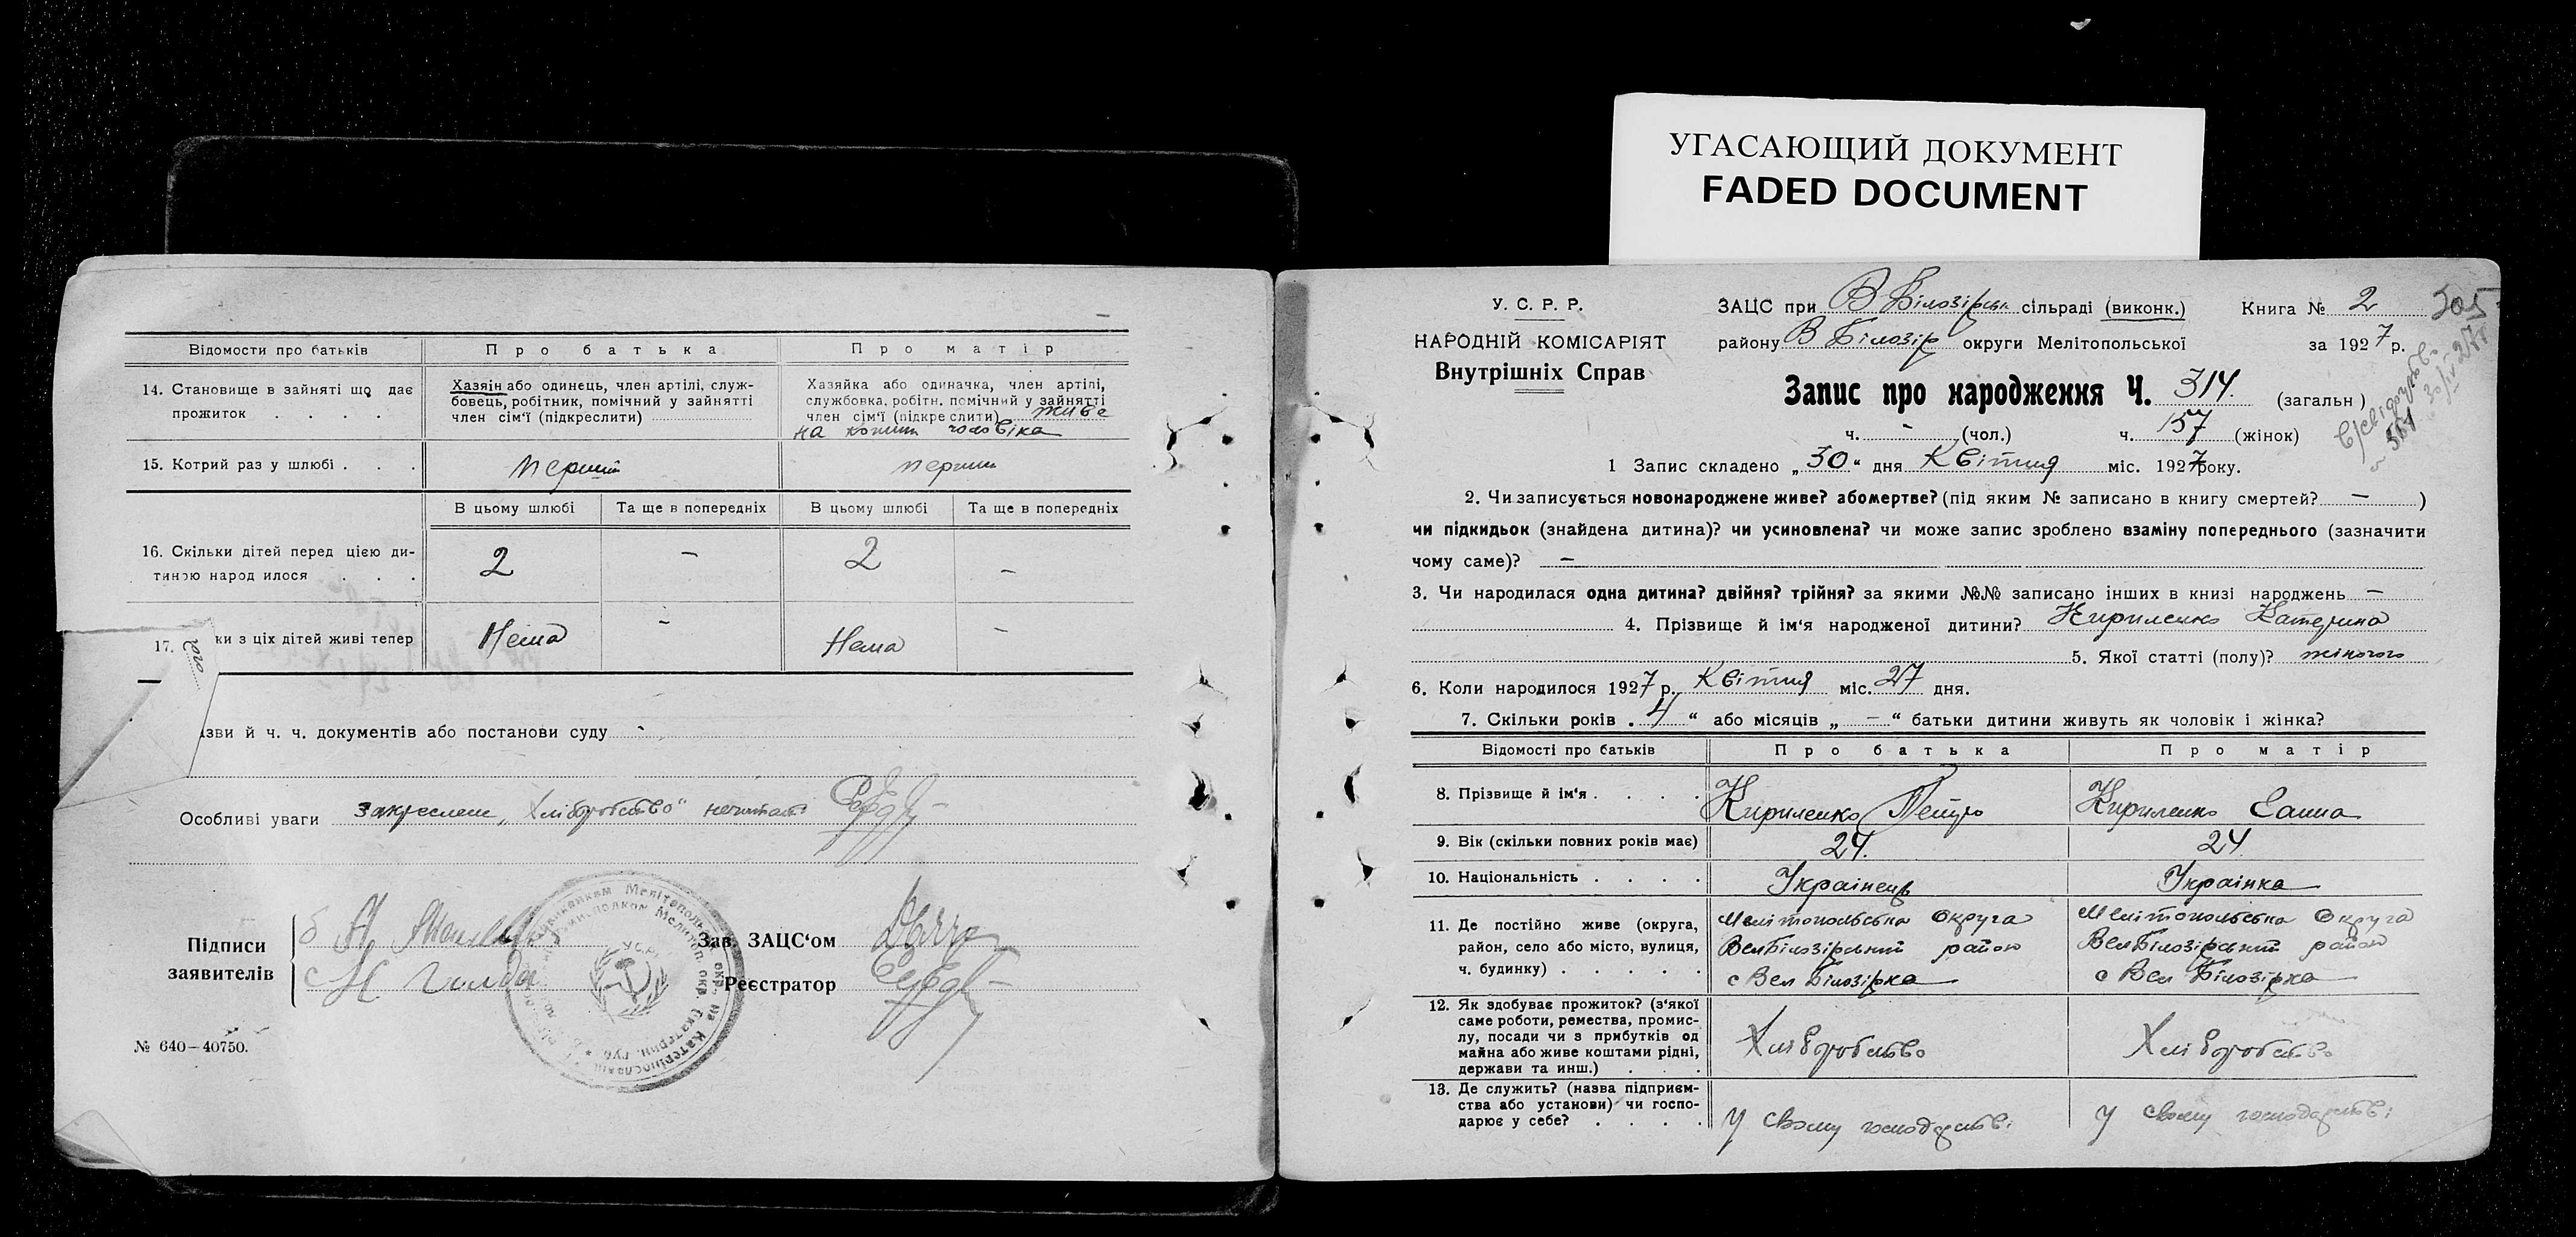 УГАСАЮЩИЙ ДОКУМЕНТ
FADED DOCUMENT
Відомости про батьків
Про батька
Про матір
14. Становище в зайняті що дає
прожиток . . . .
Хазяін або одинець, член артілі, служ-
бовець, робітник, помічний у зайнятті
член сім'ї (підкреслити)
Хазяйка або одиначка, член артілі,
службовка, робітн. помічний у зайнятті
член сім'ї (підкреслити) живе
на кошти чоловіка
15. Котрий раз у шлюбі . . .
перший
перший
В цьому шлюбі
Та ще в попередніх
В цьому шлюбі
Та ще в попередніх
16. Скільки дітей перед цією ди-
тиною народилося . . .
2
–
2
–
17. ки з ціх дітей живі тепер
Нема
–
Нема
–
зви й ч. ч. документів або постанови суду -
Особливі уваги закреслене „Хліборобство"
Підписи
заявителів
Зав. ЗАЦС'ом
Реєстратор
№ 640—40750.
У. С. Р. Р.
НАРОДНІЙ КОМІСАРІЯТ
Внутрішніх Справ
ЗАЦС при В Білозірськ сільраді (виконк.)
району В Білозір округи Мелітопольської
Книга № 2
за 1927 р.
305
Запис про народження Ч. 314. (загальн)
ч. - (чол.) ч. 157 (жінок)
1 Запис складено „30" дня Квітня міс. 1927 року.
2. Чи записується новонароджене живе? або мертве? (під яким № записано в книгу смертей? – )
чи підкидьок (знайдена дитина)? чи усиновлена? чи може запис зроблено взаміну попереднього (зазначити
чому саме)? –
3. Чи народилася одна дитина? двійня? трійня? за якими №№ записано інших в книзі народжень –
4. Прізвище й ім'я народженої дитини? Кириленко Катерина
5. Якої статті (полу)? жіночого
6. Коли народилося 1927 р. Квітня міс. 27 дня.
7. Скільки років „4" або місяців „–" батьки дитини живуть як чоловік і жінка?
Відомості про батьків
Про батька
Про матір
8. Прізвище й ім'я . . . .
Кириленко Петро
Кириленко Ганна
9. Вік (скільки повних років має)
24.
24
10. Національність . . . .
Українець
Українка
11. Де постійно живе (округа,
район, село або місто, вулиця,
ч. будинку) . . . . .
Мелітопольська Округа
ВелБілозірський район
с Вел Білозірка
Мелітопольська Округа
ВелБілозірський район
с Вел Білозірка
12. Як здобуває прожиток? (з'якої
саме роботи, ремества, промис-
лу, посади чи з прибутків од
майна або живе коштами рідні,
держави та инш.) . . .
Хліборобство
Хліборобство
13. Де служить? (назва підприєм-
ства або установи) чи госпо-
дарює у себе? . . . .
У свому господарстві
У свому господарстві